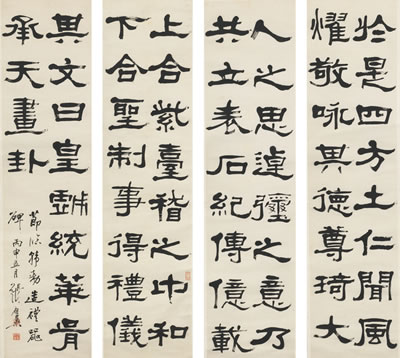 於是四方土仁聞風
耀敬咏其德尊琦大
人之思逴彌之意乃
共立表石紀傳億載
上合紫臺稽之中和
下合聖制事得禮儀
其文曰皇戲統華胥
承天畫卦
節臨韓勑造禮器
碑 丙申五月 張